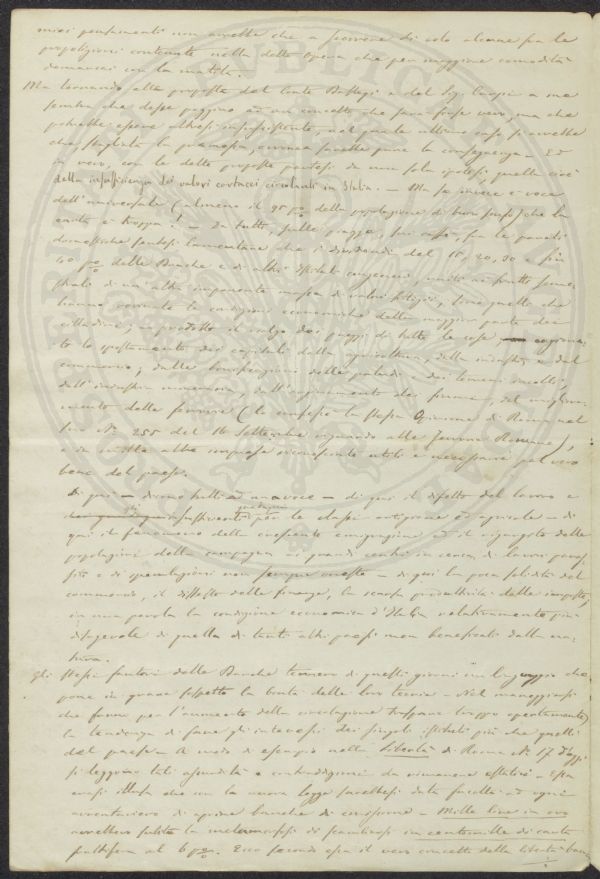 miei pensamenti non avrebbe che a scorrere di volo alcune fra le
proposizioni contenute nella detta opera che per maggiore comodità
demarcai con la matita.
Ma tornando alle proposte del Conte Bastogi e del Sig. a me
sembra che desse poggino ad un concetto che sarà forse vero, ma che
potrebbe essere altresì insussistente, nel quale ultimo caso si avrebbe
che, sbagliata la premessa, erronea sarebbe pure la conseguenza. Ed
in vero, con le dette proposte partesi da una sola ipotesi quella cioè
della insufficienza dei valori cartacei circolanti in Italia. – Ma se invece è voce
dell'universale (almeno il 95 p% della popolazione di buon senso) che la
carta è troppa! – Da tutti, sulle piazze, sui caffè, fra le pareti
domestiche sentesi lamentare che i dividendi del 15, 20, 30 e fin
40 p% delle Banche e di altri Istituti congeneri, uniti al frutto
di un'altra imponente massa di valori fittizii, sono quelli che
hanno rovinate le condizioni economiche della maggior parte dei
cittadini; prodotto il rialzo dei prezzi di tutte le cose
to lo spostamento dei capitali dalla agricoltura, dalla industria e dal
commercio; dalle bonificazioni delle paludi dei terreni incolti,
dall'industria mineraria, dall'arginamento dei fiumi, dal miglioramento
delle ferrovie (lo confessò la stessa Opinione di Roma nel
suo No. 255 del 16 Settembre riguardo alle ferrovie Romane),
e da molte altre imprese utili e necessarie pel vero
bene del paese.
Di qui – dicono tutti ad una voce – di qui il difetto del lavoro e
insufficienti guadagni per le classi artigiane ed agricole – di
qui il fenomeno della crescente emigrazione ed il rigurgito delle
popolazioni della campagna ai grandi centri in cerca di lavori
e di speculazioni non sempre oneste – di qui la poca solidità del
commercio, il dissesto delle finanze, la scarsa produttività delle imposte;
in una parola la condizione economica d'Italia relativamente più
disagevole di quella di tanti altri paesi men beneficati dalla natura.
Gli stessi fautori delle Banche tennero di questi giorni un linguaggio che
pone in grave sospetto la bontà delle loro teorie – Nel maneggiarsi
che fanno per l'aumento della circolazione traspare troppo apertamente
la tendenza di fare gl'interessi dei singoli Istituti più che quelli
del paese – A modo di esempio nella Libertà di Roma No 17 d'oggi
si leggono tali assurdità e contraddizioni da rimanere estatici – Essa
illusa che con la nuova legge sarebbesi data facoltà ad ogni
di aprire banche di emissione – Mille lire in oro
avrebbero subita la metamorfosi di scambiarsi in centomille di carta
fruttifera al 6 p%. Ecco secondo essa il vero concetto della libertà